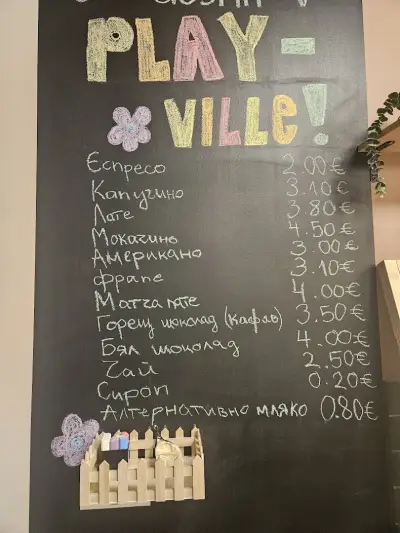 PLAY-
VILLE!
Еспресо 2.00€
Капучино 3.10€
Лате 3.80€
Мокачино 4.50€
Американо 3.00€
Фрапе 3.10€
Матча лате 4.00€
Горещ шоколад (кафяв) 3.50€
Бял шоколад 4.00€
Чай 2.50€
Сироп 0.20€
Алтернативно мляко 0.80€